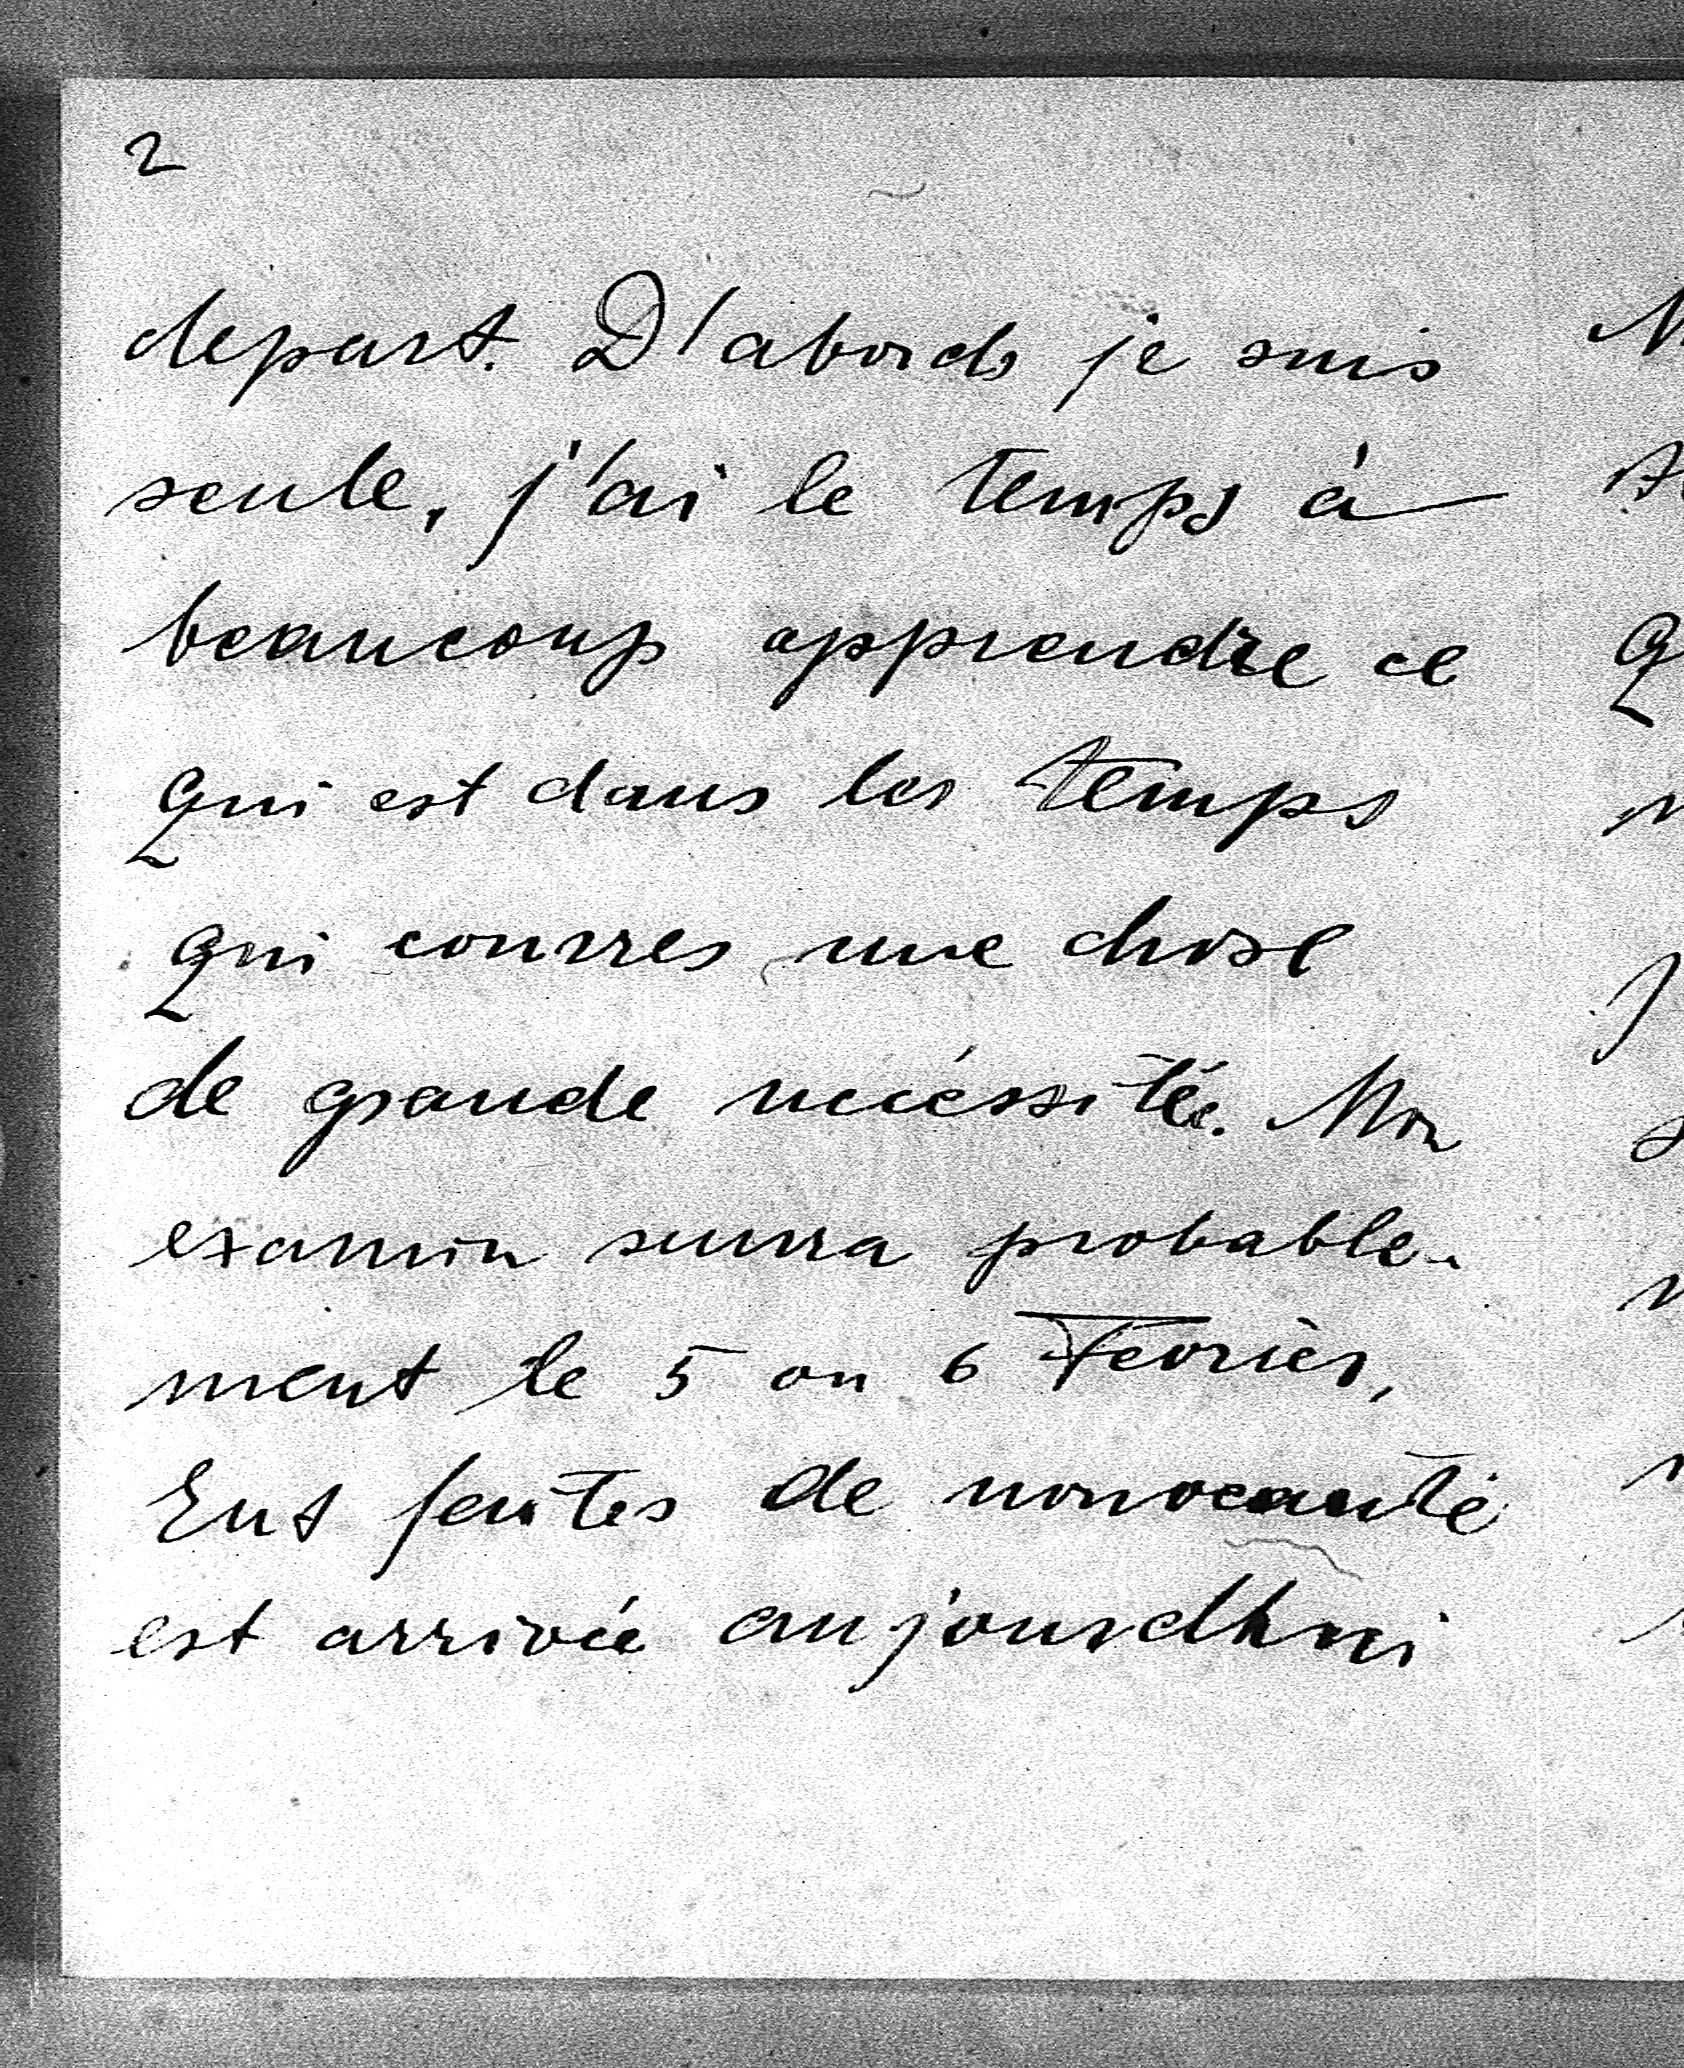 2
depart. D'abords je suis
seule, j'ai le temps à
beaucoup apprendre ce
qui est dans les temps
qui courres une chose
de grande necéssitée. Mon
examin serra probable-
ment le 5 ou 6 Fevrièr,
de
est arrivée aujourdhui